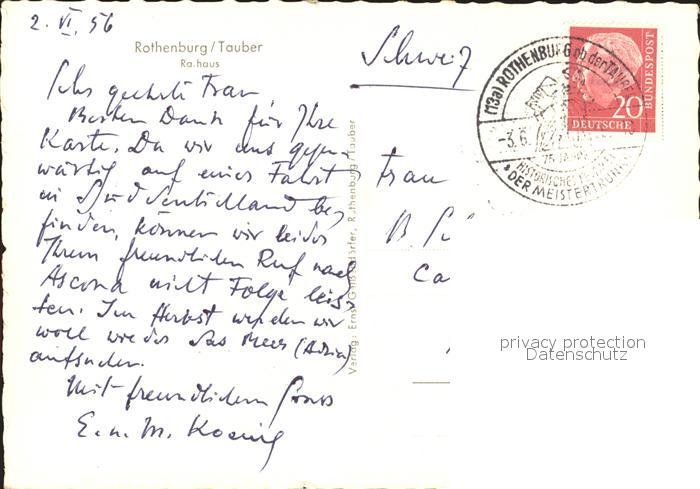 2. VI. 56
Rothenburg / Tauber
Rathaus
Sehr geehrte Frau
Besten Dank für Ihre
Karte. Da wir uns gegen-
wärtig auf einer Fahrt
in Süddeutschland be-
finden, können wir leider
Ihrem freundlichen Ruf nach
Ascona nicht Folge leis-
ten. Im Herbst werden wir
wohl wieder das Meer (Adria)
aufsuchen.
Mit freundlichem Gruss
E. u. M. Koenig
Verlag: Ernst Rothenburg / Tauber
Schweiz
Frau
B.
Ca
(13a) ROTHENBURG ob der TAUBER
-3.6.
75 JAHRE
HISTORISCHES
"DER MEISTERTRUNK"
20
DEUTSCHE
BUNDESPOST
privacy protection
Datenschutz